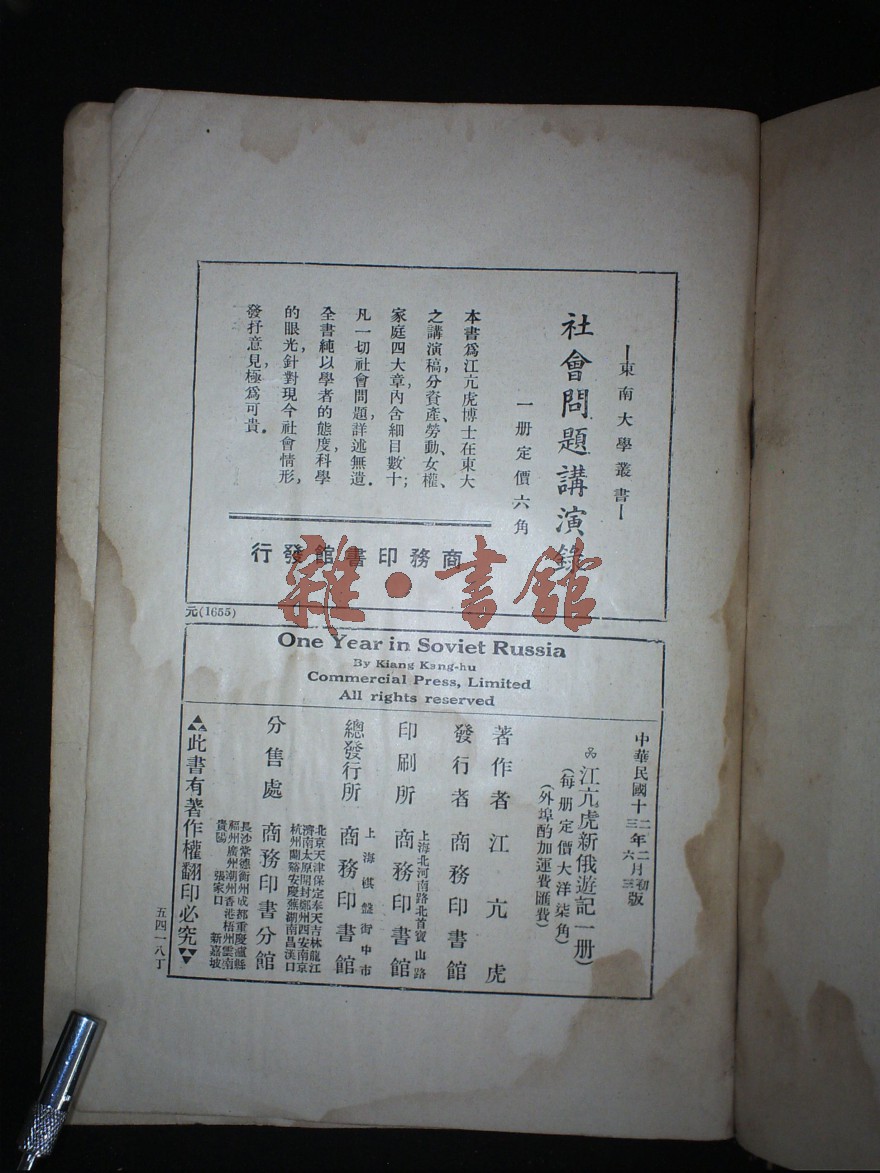 —東南大學叢書—
社會問題講演錄
一册定價六角
本書爲江亢虎博士在東大
之講演稿，分資產、勞動、女權、
家庭四大章，內含細目數十；
凡一切社會問題，詳述無遺．
全書純以學者的態度，科學
的眼光，針對現今社會情形，
發抒意見，極爲可貴．
商務印書館發行
雜·書館
元(1655)
One Year in Soviet Russia
By Kiang Kang-hu
Commercial Press, Limited
All rights reserved
中華民國十二年二月初版
三年六月三版
江亢虎新俄遊記一册
(每册定價大洋柒角)
(外埠酌加運費匯費)
著作者 江亢虎
發行者 商務印書館
上海北河南路北首寶山路
印刷所 商務印書館
上海棋盤街中市
總發行所 商務印書館
北京天津保定奉天吉林龍江
濟南太原開封鄭州西安南京
杭州蘭谿安慶蕪湖南昌漢口
分售處 商務印書分館
長沙常德衡州成都重慶瀘縣
福州廣州潮州香港梧州雲南
貴陽 張家口 新嘉坡
此書有著作權翻印必究
五四一八丁